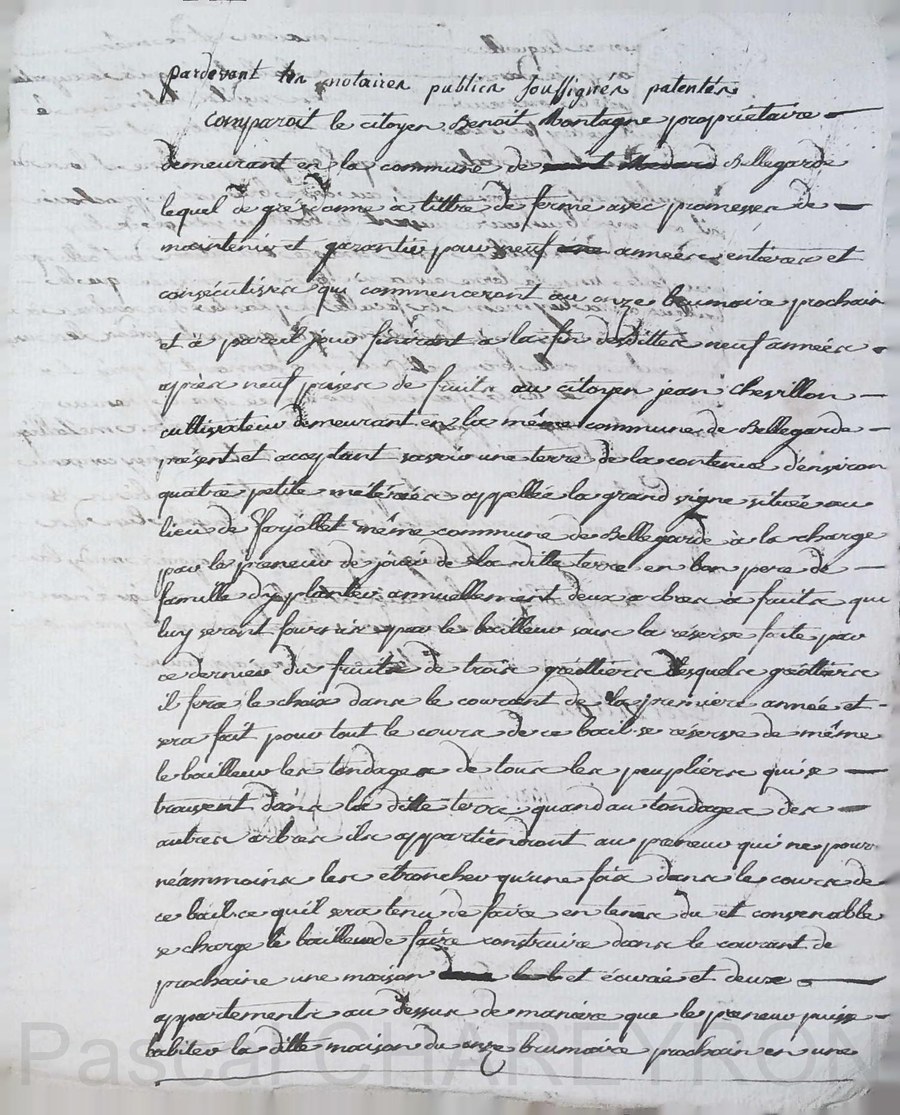 pardevant les notaires publics soussignés patentés
comparoit le citoyen Benoit Montagne propriétaire
demeurant en la commune de Bellegarde
lequel de gré donne a tittre de ferme avec promesses de
maintenir et garantir pour neuf années entieres et
consécutives qui commenceront au onze brumaire prochain
et à pareil jour finiront a la fin desdittes neuf années
après neuf prises de fruits au citoyen jean Chevillon
cultivateur demeurant en la même commune de Bellegarde
présent et acceptant savoir une terre de la contenue d'environ
quatre petite méterées appellée la grand vigne située au
lieu de Jarjollet même commune de Bellegarde à la charge
par le preneur de jouir de la ditte terre en bon pere de
famille d'y planter annuellement deux arbres à fruits qui
luy seront fournis par le bailleur sous la réserve faite par
ce dernier du fruits de trois gréottiers desquels gréottiers
il fera le choix dans le courant de la premiere année et
sera fait pour tout le cours de ce bail se réserve de même
le bailleur les tondages de tous les peupliers qui se
trouvent dans la ditte terre quand au tondages des
autres arbres ils appartiendront au preneur qui ne pourra
néammoins les étroncher qu'une fois dans le cours de
ce bail ce qu'il sera tenu de faire en tems du et convenable
se charge le bailleur de faire construire dans le courant de
prochaine une maison et écurie et deux
appartements au dessus de maniere que le preneur puisse
habiter la ditte maison du onze brumaire prochain en une
Pascal CHAREYRON